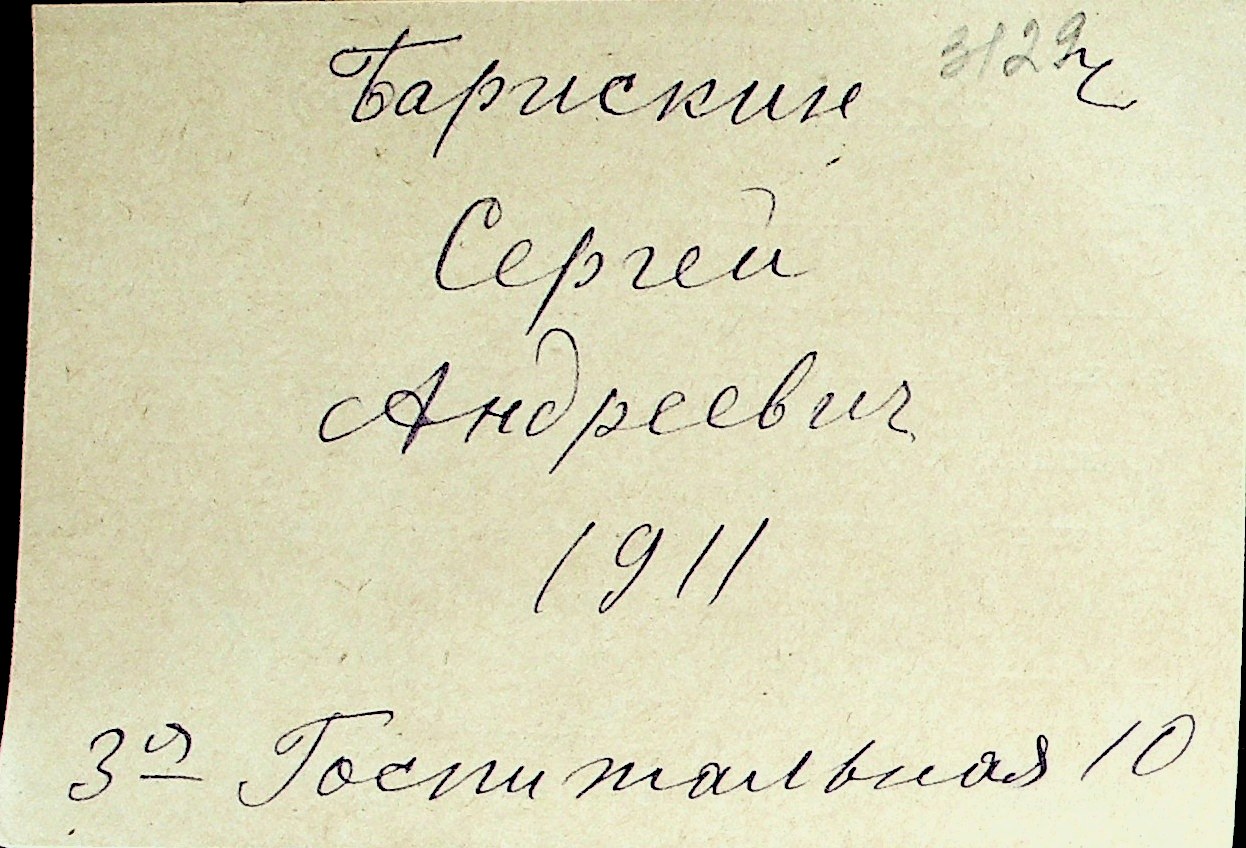 Барискин 3129 ч
Сергей
Андреевич
1911
3я Госпитальная 10